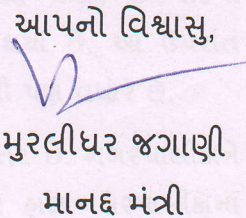 આપનો વિશ્વાસુ,
મુરલીધર જગાણી
માનદ્દ મંત્રી